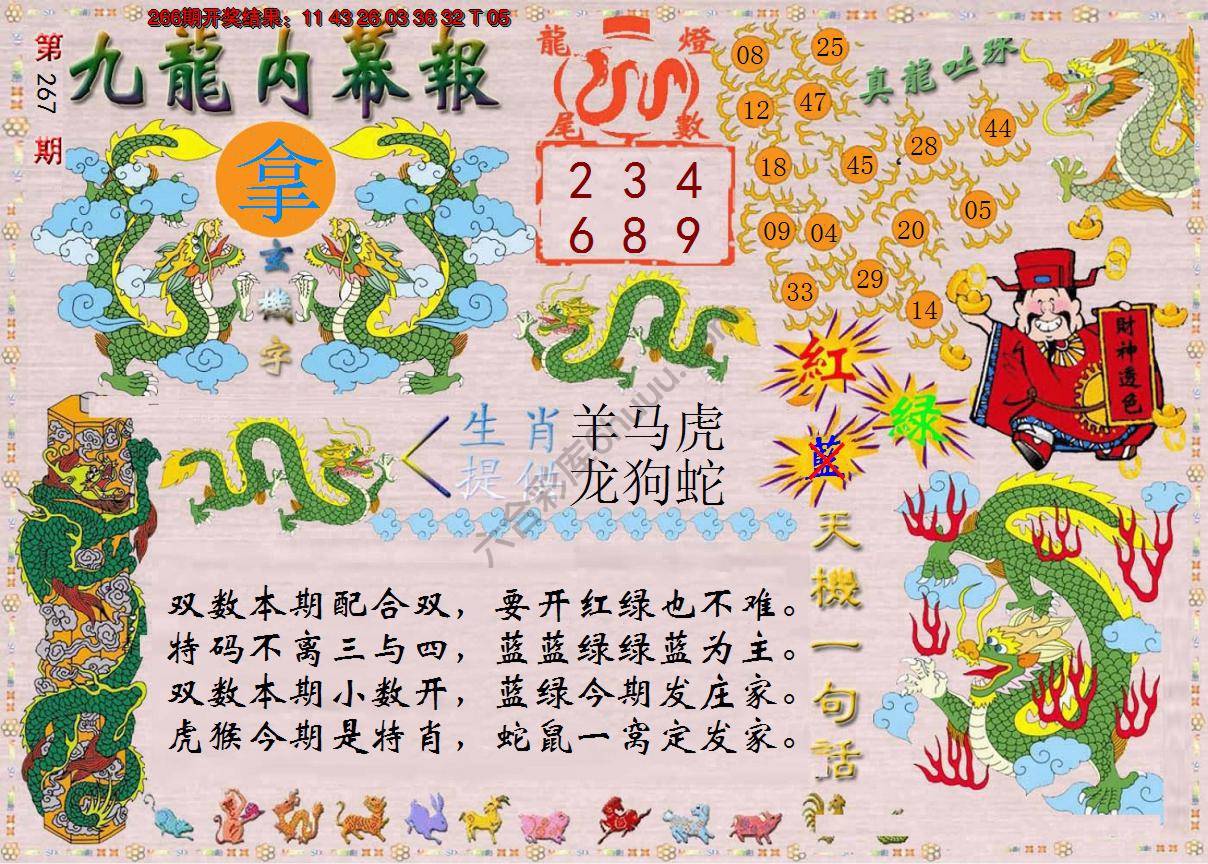 266期开奖结果：11 43 26 03 36 32 T 05
第267期
九龍内幕報
拿
玄機字
龍燈尾數
2 3 4
6 8 9
真龍吐珠
08 25
12 47
18 45 28 44
09 04 20 05
33 29 14
財神透色
紅
綠
藍
生肖提供
羊马虎
龙狗蛇
天機一句話
双数本期配合双，要开红绿也不难。
特码不离三与四，蓝蓝绿绿蓝为主。
双数本期小数开，蓝绿今期发庄家。
虎猴今期是特肖，蛇鼠一窝定发家。